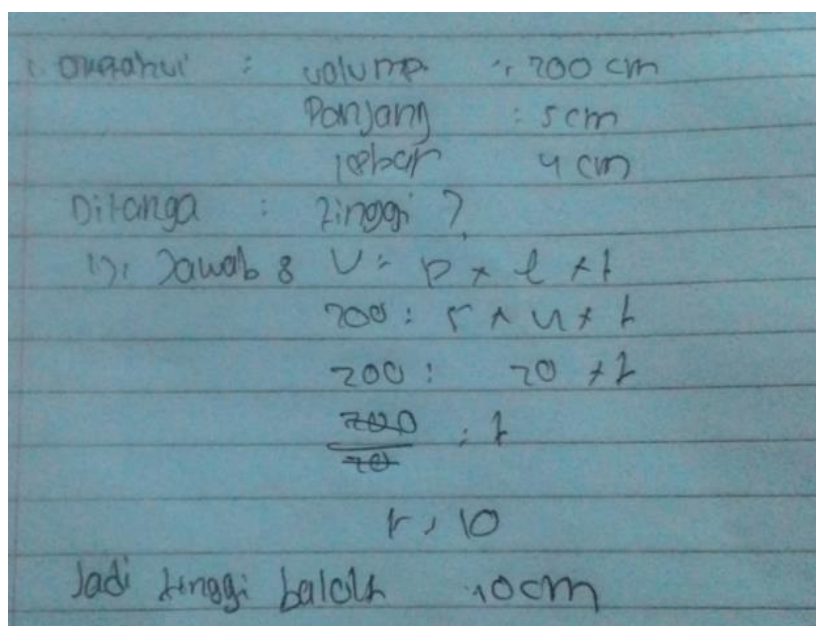 Diketahui : volume : 200 cm
Panjang : 5 cm
lebar 4 cm
Ditanya : tinggi ?
Jawab : V = p x l x t
200 : 5 x 4 x t
200 : 20 x t
200/20 : t
t = 10
Jadi tinggi balok 10 cm